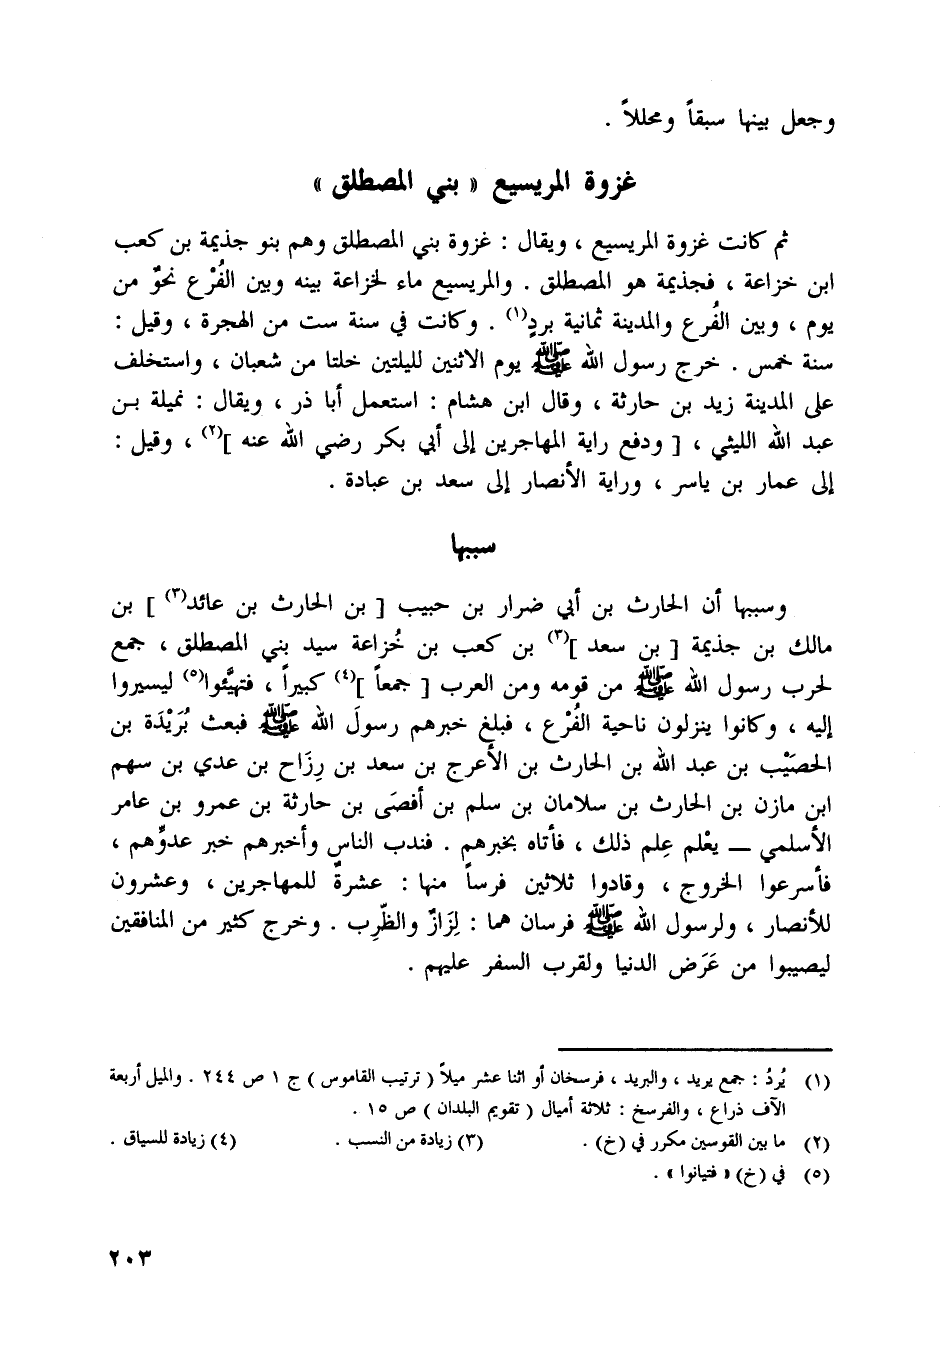 وجعل بينها سبقاً ومحللاً .
غزوة المريسيع « بني المصطلق »
ثم كانت غزوة المريسيع ، ويقال : غزوة بني المصطلق وهم بنو جذيمة بن كعب
ابن خزاعة ، فجذيمة هو المصطلق . والمريسيع ماء لخزاعة بينه وبين الفُرْع نحوٌ من
يوم ، وبين الفُرع والمدينة ثمانية بردٍ(١) . وكانت في سنة ست من الهجرة ، وقيل :
سنة خمس . خرج رسول الله ﷺ يوم الاثنين لليلتين خلتا من شعبان ، واستخلف
على المدينة زيد بن حارثة ، وقال ابن هشام : استعمل أبا ذر ، ويقال : نميلة بن
عبد الله الليثي ، [ ودفع راية المهاجرين إلى أبي بكر رضي الله عنه ](٢) ، وقيل :
إلى عمار بن ياسر ، وراية الأنصار إلى سعد بن عبادة .
سببها
وسببها أن الحارث بن أبي ضرار بن حبيب [ بن الحارث بن عائد(٣) ] بن
مالك بن جذيمة [ بن سعد ](٣) بن كعب بن خُزاعة سيد بني المصطلق ، جمع
لحرب رسول الله ﷺ من قومه ومن العرب [ جمعاً ](٤) كبيراً ، فتهيَّئوا(٥) ليسيروا
إليه ، وكانوا ينزلون ناحية الفُرْع ، فبلغ خبرهم رسولَ الله ﷺ فبعث بُرَيْدَة بن
الحصَيْب بن عبد الله بن الحارث بن الأعرج بن سعد بن رِزَاح بن عدي بن سهم
ابن مازن بن الحارث بن سلامان بن سلم بن أفصَى بن حارثة بن عمرو بن عامر
الأسلمي — يعْلم عِلم ذلك ، فأتاه بخبرهم . فندب الناس وأخبرهم خبر عدوِّهم ،
فأسرعوا الخروج ، وقادوا ثلاثين فرساً منها : عشرةٌ للمهاجرين ، وعشرون
للأنصار ، ولرسول الله ﷺ فرسان هما : لِزَازٌ والظَّرِب . وخرج كثير من المنافقين
ليصيبوا من عَرَض الدنيا ولقرب السفر عليهم .
(١) بُردُ : جمع بريد ، والبريد ، فرسخان أو اثنا عشر ميلاً ( ترتيب القاموس ) ج ١ ص ٢٤٤ . والميل أربعة
الآف ذراع ، والفرسخ : ثلاثة أميال ( تقويم البلدان ) ص ١٥ .
(٢) ما بين القوسين مكرر في (خ) . (٣) زيادة من النسب . (٤) زيادة للسياق .
(٥) في (خ) « فتيانوا » .
٢٠٣